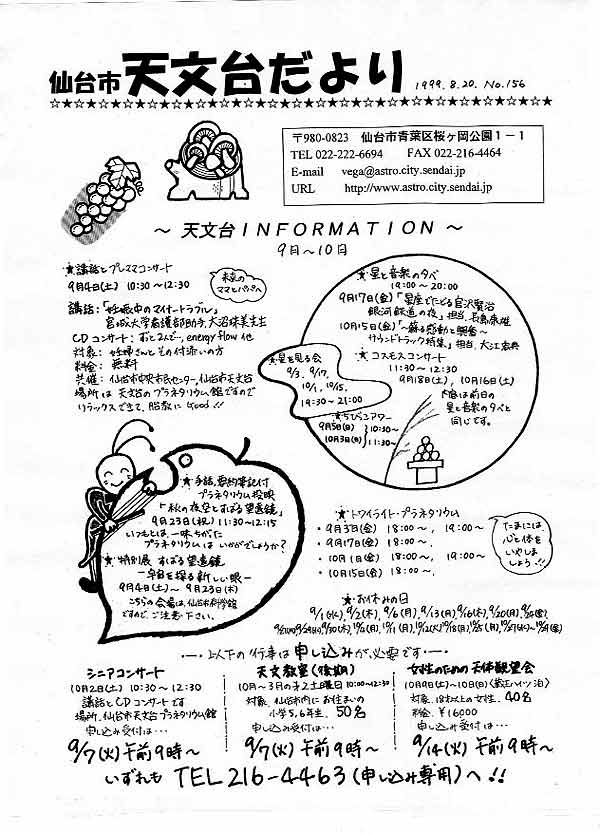 仙台市 天文台だより 1999.8.20. No.156
〒980-0823 仙台市青葉区桜ヶ岡公園1-1
TEL 022-222-6694 FAX 022-216-4464
E-mail vega@astro.city.sendai.jp
URL http://www.astro.city.sendai.jp
~ 天文台 INFORMATION ~
9月~10月
★講話とプレママコンサート
9月4日(土) 10:30~12:30
未来のママとパパへ
講話:「妊娠中のマイナートラブル」
宮城大学看護部助手 大沼珠美先生
CDコンサート: energy flow 他
対象: 妊婦さんとその付添いの方
料金: 無料
共催: 仙台市中央市民センター, 仙台市天文台
場所は 天文台のプラネタリウム館ですので
リラックスできて、胎教に Good!!
★星と音楽の夕べ
19:00~20:00
9月17日(金)「星座でたどる宮沢賢治
銀河鉄道の夜」担当、長島康雄
10月15日(金)「~蘇る感動と興奮~
サウンドトラック特集」担当、大江宏典
★コスモスコンサート
11:30~12:30
9月18日(土), 10月16日(土)
内容は前日の
星と音楽の夕べと
同じです。
★星を見る会
9/3, 9/17,
10/1, 10/15,
19:30~21:00
★ちびっこアワー
9月5日(日)
10月3日(日)
10:30~
11:30~
★手話、要約筆記付
プラネタリウム投映
「秋の夜空とすばる望遠鏡」
9月23日(祝) 11:30~12:15
いつもとは、一味ちがった
プラネタリウムは いかがでしょうか?
★特別展 すばる望遠鏡
-宇宙を探る新しい眼-
9月4日(土)~ 9月23日(木)
こちらの会場は、仙台市科学館
ですので、ご注意下さい。
★トワイライト・プラネタリウム
・9月3日(金) 18:00~, 19:00~
・9月17日(金) 18:00~,
・10月1日(金) 18:00~, 19:00~
・10月15日(金) 18:00~.
たまには、心と体をいやしましょう!!
★お休みの日
9/1(水), 9/2(木), 9/6(月), 9/13(月), 9/16(木), 9/20(月),
-・-. 以下の行事は 申し込みが必要です -・-
シニアコンサート
10月2日(土) 10:30~12:30
講話とCDコンサートです
場所、仙台市天文台プラネタリウム館
申し込み受付は…
9/7(火)午前9時~
天文教室(後期)
10月~3月の第2土曜日 10:00~12:30
対象、仙台市内にお住まいの
小学5,6年生、50名
申し込み受付は…
9/7(火)午前9時~
女性のための天体観望会
10月9日(土)~10日(日)(蔵王ハイツ泊)
対象、18才以上の女性、40名
料金、¥16000
申し込み受付は…
9/14(火) 午前9時~
いずれも TEL 216-4463 (申し込み専用)へ!!